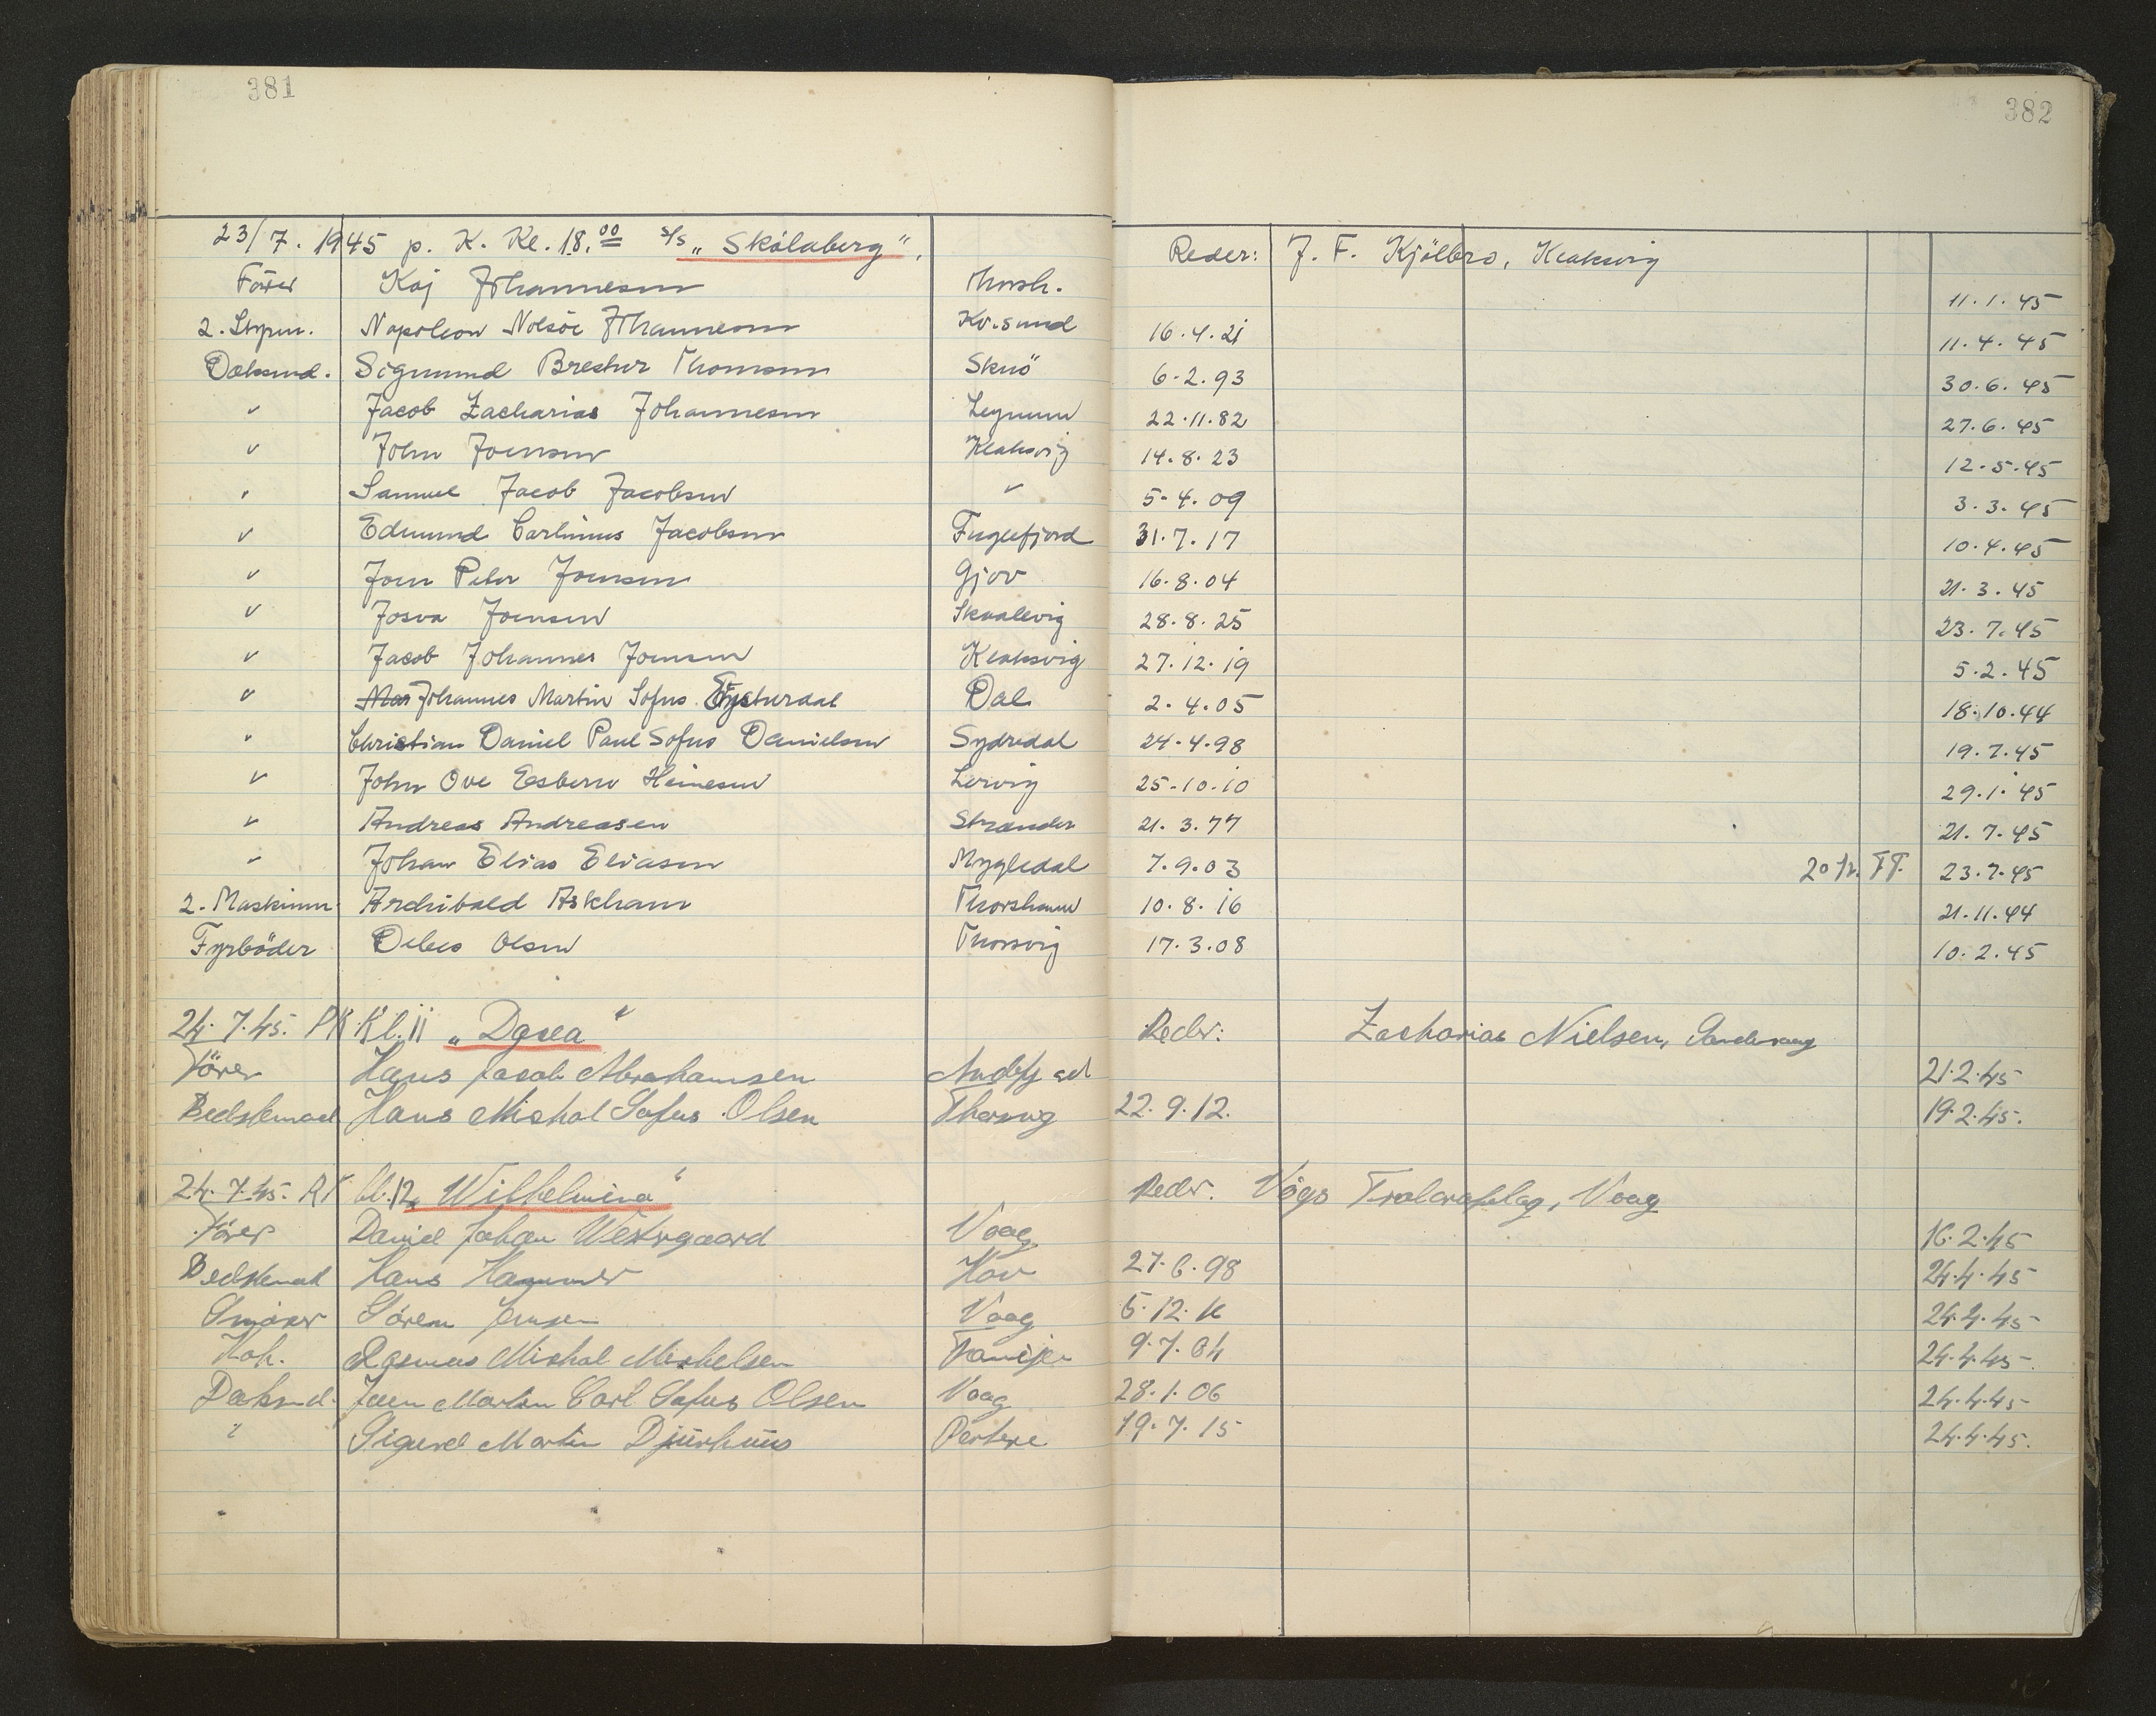 381
382
23/7. 1945 p. K. Kl. 18.00 s/s „Skálaberg“. Reder: J. F. Kjölbro, Klaksvig
Förer Kaj Johannesen Thorsh. 11.1.45
2. Styrm. Napoleon Nolsöe Johannesen Kv.sund 16.4.21 11.4.45
Dæksmd. Sigmund Brestur Thomsen Skuö 6-2.93 30.6.45
" Jacob Zacharias Johannesen Leynum 22.11.82 27.6.45
" John Joensen Klaksvig 14.8.23 12.5.45
" Samuel Jacob Jacobsen " 5-4.09 3.3.45
" Edmund Carlinus Jacobsen Fuglefjord 31.7.17 10.4.45
" Joen Peter Joensen Gjov 16.8.04 21.3.45
" Josva Joensen Skaalevig 28.8.25 23.7.45
" Jacob Johannes Joensen Klaksvig 27.12.19 5.2.45
" Mar Johannes Martin Sofus Eysturdal Dal 2.4.05 18.10.44
" Christian Daniel Paul Sofus Danielsen Sydredal 24.4.98 19.7.45
" John Ove Esbern Heinesen Lervig 25.10.10 29.1.45
" Andreas Andreasen Strænder 21.3.77 21.7.45
" Johan Elias Eliasen Mygledal 7.9.03 20 kr. FF. 23.7.45
2. Maskinm. Archibald Askham Thorshavn 10.8.16 21.11.44
Fyrböder Debes Olsen Thorsvig 17.3.08 10.2.45
24.7.45. PK Kl. 11 „Dosea“ Reder: Zacharias Nielsen, Sandevaag
Förer Hans Jacob Abrahamsen 21.2.45
Bedstemand Hans Michal Sofus Olsen Thorsvig 22.9.12. 19.2.45.
24.7.45. PK kl. 12 „Wilhelmina“ Reder. Vágs Trolarafelag, Vaag
Förer Daniel Johan Vestergaard Vaag 16.2.45
Bedstemd Hans Hammer Hov 27.6.98 24.4.45
Smörer Sören Jensen Vaag 5.12. 24.4.45
Kok. Rasmus Michal Michelsen Famijen 9.7.04 24.4.45.
Dæksmd. Joen Martin Carl Sofus Olsen Vaag 28.1.06 24.4.45
" Sigurd Martin Djurhuus Porkere 19.7.15 24.4.45.